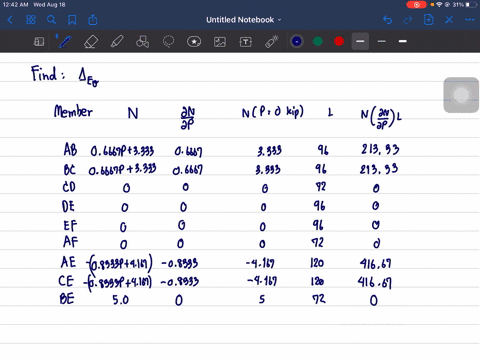 12:42 AM Wed Aug 18
31%
Untitled Notebook
Find: Δ_Eθ
Member N ∂N/∂P N(P=0 kip) L N(∂N/∂P)L
AB 0.6667P+3.333 0.6667 3.333 96 213,33
BC 0.6667P+3.333 0.6667 3.333 96 213,33
CD 0 0 0 72 0
DE 0 0 0 96 0
EF 0 0 0 96 0
AF 0 0 0 72 0
AE -(0.8333P+4.167) -0.8333 -4.167 120 416.67
CE -(0.8333P+4.167) -0.8333 -4.167 120 416.67
BE 5.0 0 5 72 0